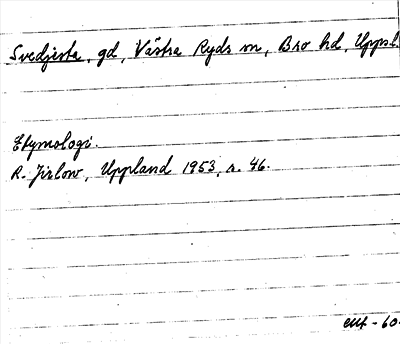 Svedjesta, gd, Västra Ryds sn, Bro hd, Uppsl.
Etymologi.
R. Jirlow, Uppland 1953, s. 46.
-60.